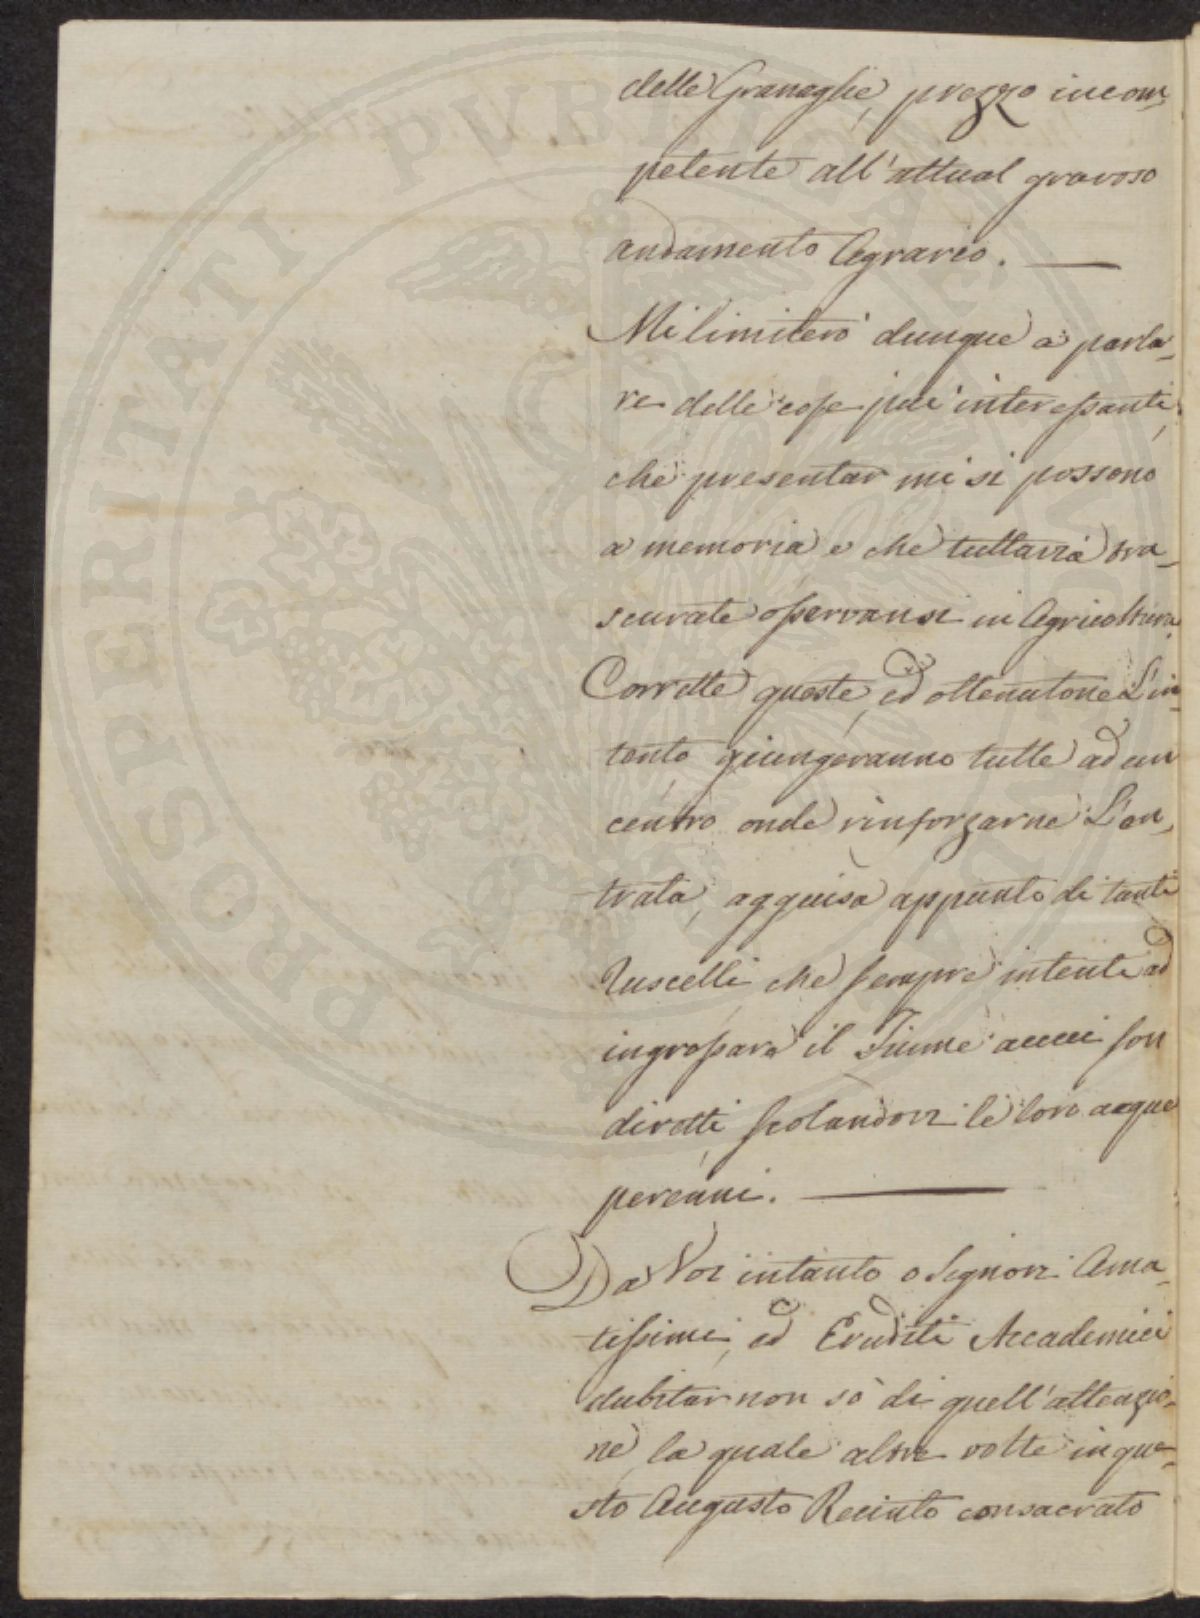 delle Granaglie, prezzo incom,
petente all'attual gravoso
andamento Agrario. —
Mi limiterò dunque a parla,
re delle cose più interessanti,
che presentar mi si possono
a memoria e che tuttavia tra,
scurate osservansi in Agricoltura.
Corrette queste, ed ottenutone L'in,
tento giungeranno tutte ad un
centro onde rinforzarne L'en,
trata, agguisa appunto di tanti
Ruscelli, che sempre intenti ad
ingrossare il Fiume a cui son
diretti scolandovi le loro acque
perenni. —
Da Voi intanto o Signori Ama,
tissimi, ed Eruditi Accademici
dubitar non sò di quell'attenzio,
ne, la quale altre volte in que,
sto Augusto Recinto consacrato
PROSPERITATI PVBLICAE AVGENDAE